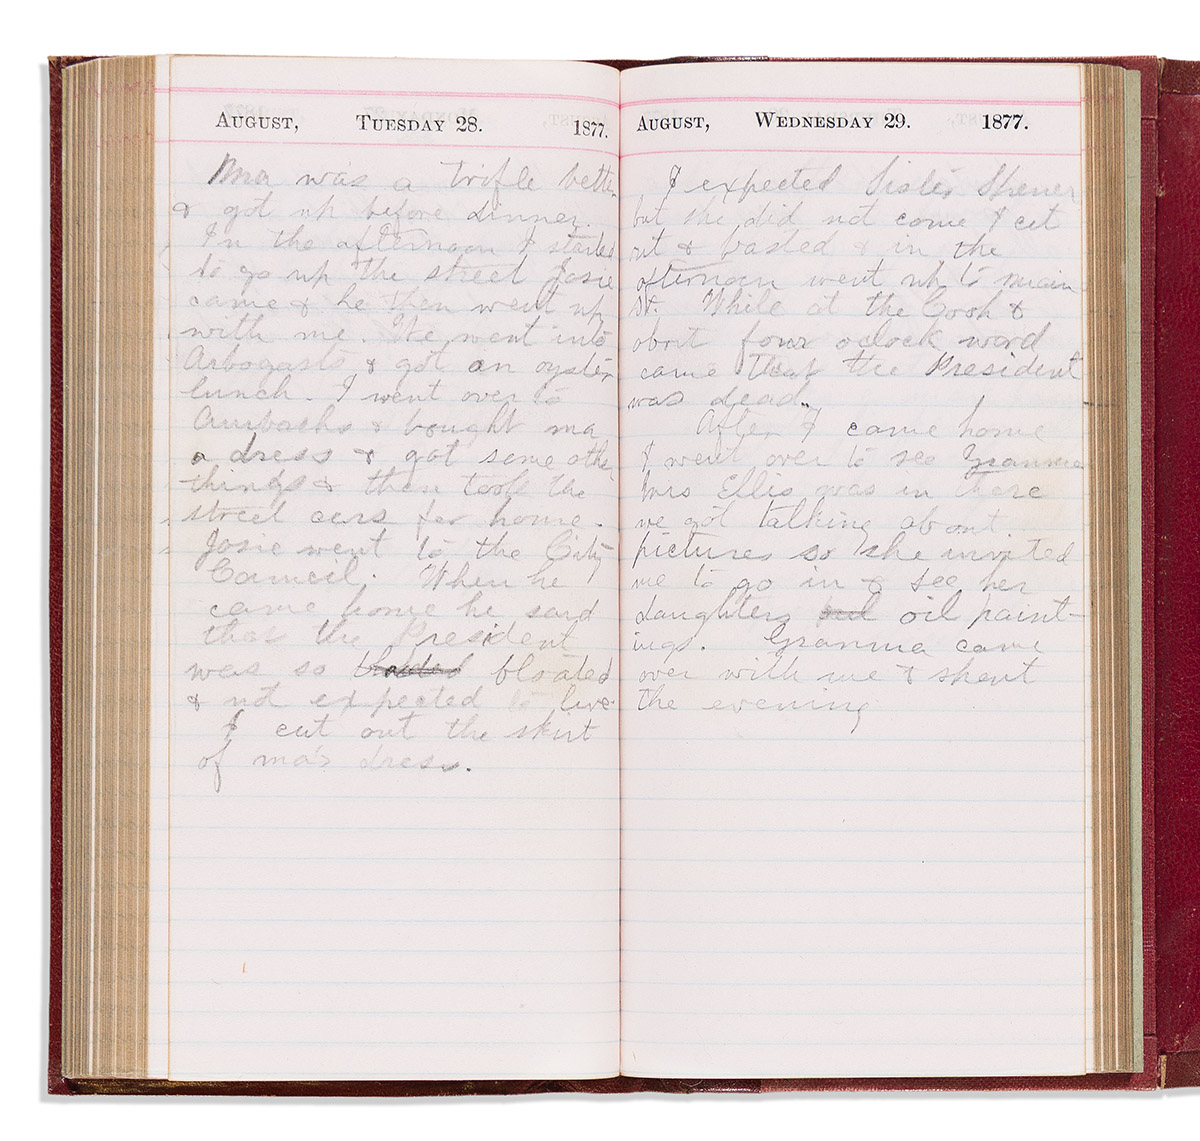 August, Tuesday 28. 1877.
Ma was a trifle better
& got up before dinner.
In the afternoon I started
to go up the street Josie
came & he then went up
with me. We went into
Arbogasts & got an oyster
lunch. I went over to
Aurbachs & bought ma
a dress & got some other
things & then took the
street cars for home.
Josie went to the City
Council. When he
came home he said
that the President
was so bloated
& not expected to live.
I cut out the skirt
of ma's dress.
August, Wednesday 29. 1877.
I expected Sister
but she did not come I cut
out & basted & in the
afternoon went up to main
St. While at the Coop &
about four oclock word
came that the President
was dead.
After I came home
I went over to see Granma
Mrs Ellis was in there
we got talking about
pictures so she invited
me to go in & see her
daughters oil paint-
ings. Granma came
over with me & spent
the evening